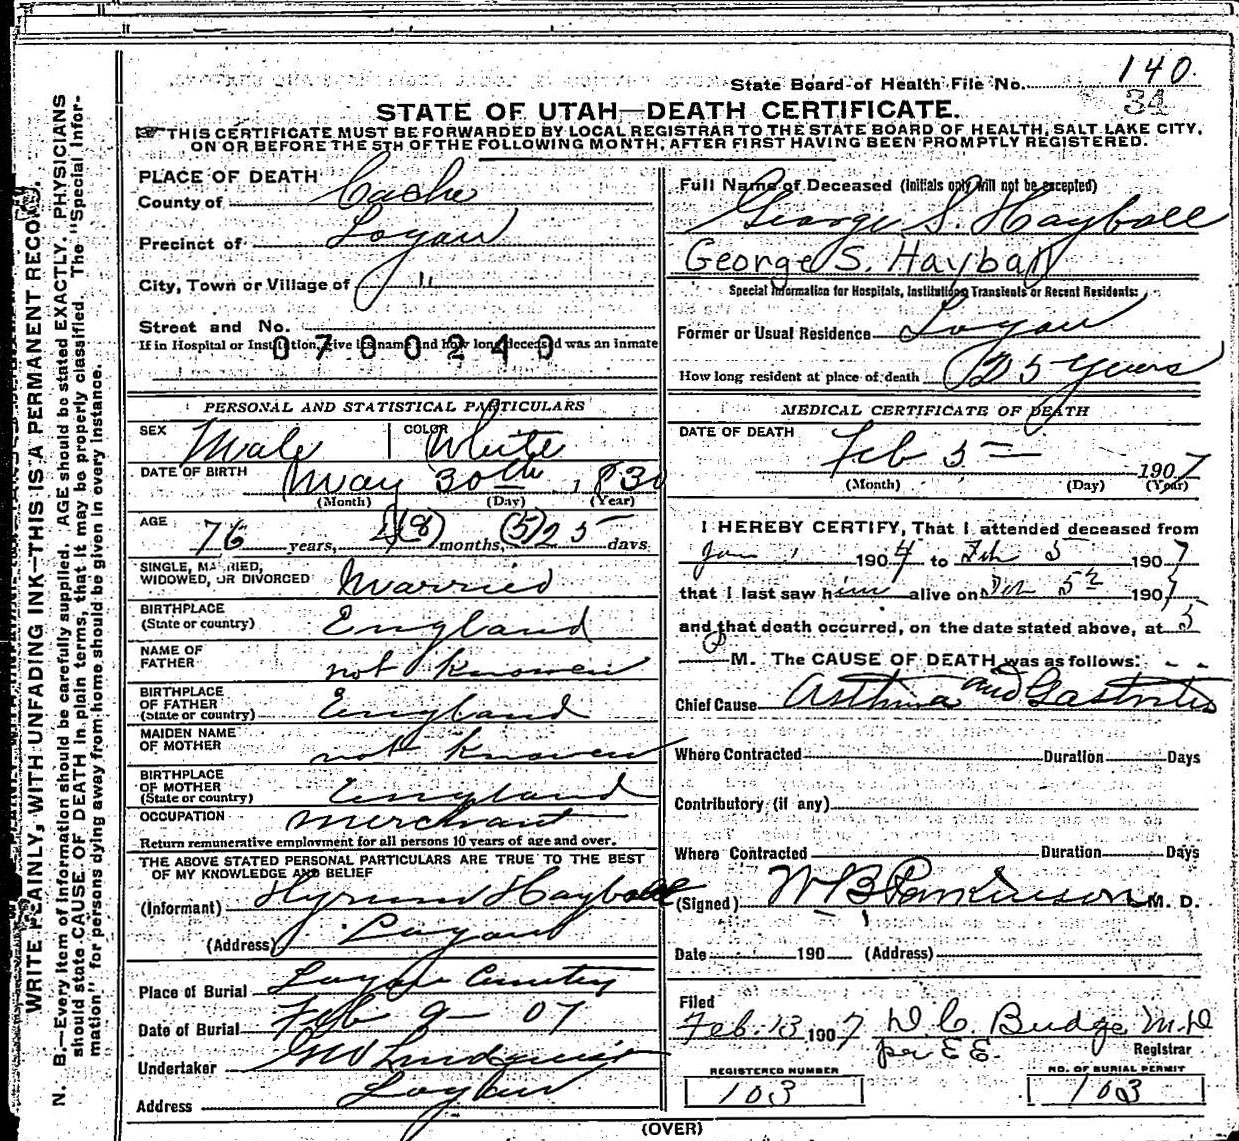 State Board of Health File No. 140.
34
STATE OF UTAH—DEATH CERTIFICATE.
THIS CERTIFICATE MUST BE FORWARDED BY LOCAL REGISTRAR TO THE STATE BOARD OF HEALTH, SALT LAKE CITY,
ON OR BEFORE THE 5TH OF THE FOLLOWING MONTH, AFTER FIRST HAVING BEEN PROMPTLY REGISTERED.
WRITE PLAINLY, WITH UNFADING INK—THIS IS A PERMANENT RECORD.
N. B.—Every item of information should be carefully supplied. AGE should be stated EXACTLY. PHYSICIANS
should state CAUSE OF DEATH in plain terms, that it may be properly classified. The "Special Infor-
mation" for persons dying away from home should be given in every instance.
PLACE OF DEATH
County of Cache
Precinct of Logan
City, Town or Village of "
Street and No.
If in Hospital or Institution, give its name and how long deceased was an inmate
0700240
PERSONAL AND STATISTICAL PARTICULARS
SEX Male COLOR White
DATE OF BIRTH May 30th, 1830
(Month) (Day) (Year)
AGE 76 years, (8) months, (5) 25 days
SINGLE, MARRIED,
WIDOWED, OR DIVORCED Married
BIRTHPLACE
(State or country) England
NAME OF
FATHER not knowen
BIRTHPLACE
OF FATHER
(State or country) England
MAIDEN NAME
OF MOTHER not knowen
BIRTHPLACE
OF MOTHER
(State or country) England
OCCUPATION merchant
Return remunerative employment for all persons 10 years of age and over.
THE ABOVE STATED PERSONAL PARTICULARS ARE TRUE TO THE BEST
OF MY KNOWLEDGE AND BELIEF
(Informant) Hyrum Hayball
(Address) Logan
Place of Burial Logan Cemetery
Date of Burial Feb 9— 07
Undertaker Lindquist
Address Logan
Full Name of Deceased (Initials only will not be excepted)
George S. Hayball
George S. Hayball
Special Information for Hospitals, Institutions, Transients or Recent Residents:
Former or Usual Residence Logan
How long resident at place of death 5 years
MEDICAL CERTIFICATE OF DEATH
DATE OF DEATH
Feb 5— 1907
(Month) (Day) (Year)
I HEREBY CERTIFY, That I attended deceased from
Jan 1904 to Feb 5 1907
that I last saw him alive on Feb 5th 1907
and that death occurred, on the date stated above, at 5
P M. The CAUSE OF DEATH was as follows:
Chief Cause Asthma and Gastritis
Where Contracted Duration Days
Contributory (if any)
Where Contracted Duration Days
(Signed) W B Parkinson M. D.
Date 190 (Address)
Filed
Feb. 13 1907 D. C. Budge, M.D
per E E. Registrar
REGISTERED NUMBER NO. OF BURIAL PERMIT
103 103
(OVER)